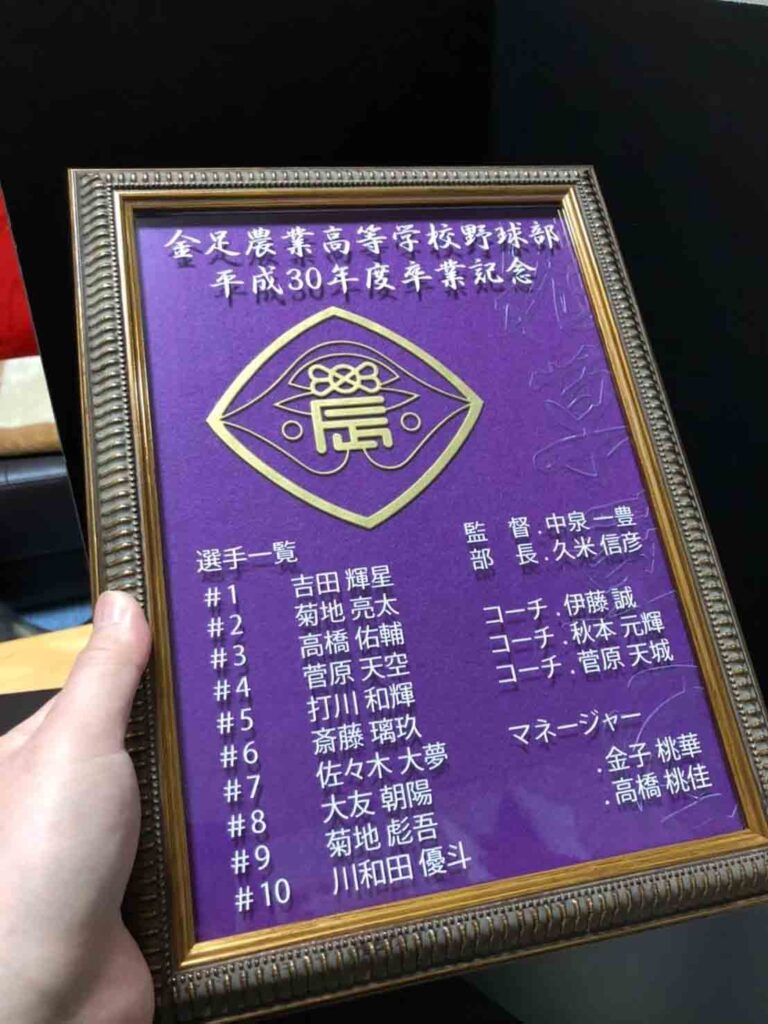 金足農業高等学校野球部
平成30年度卒業記念
農
監 督.中泉 一豊
部 長.久米 信彦
選手一覧
#1 吉田 輝星
#2 菊地 亮太
#3 高橋 佑輔
#4 菅原 天空
#5 打川 和輝
#6 斎藤 璃玖
#7 佐々木 大夢
#8 大友 朝陽
#9 菊地 彪吾
#10 川和田 優斗
コーチ.伊藤 誠
コーチ.秋本 元輝
コーチ.菅原 天城
マネージャー
.金子 桃華
.高橋 桃佳